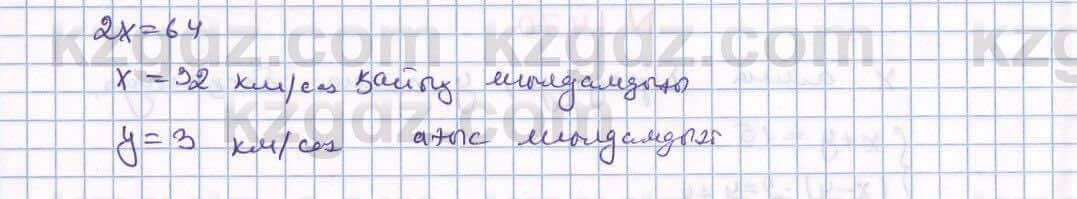 2x=64
x = 32 км/сағ қайық жылдамдығы
y = 3 км/сағ ағыс жылдамдығы
kzgdz.com kzgdz.com kzg
kzgdz.com